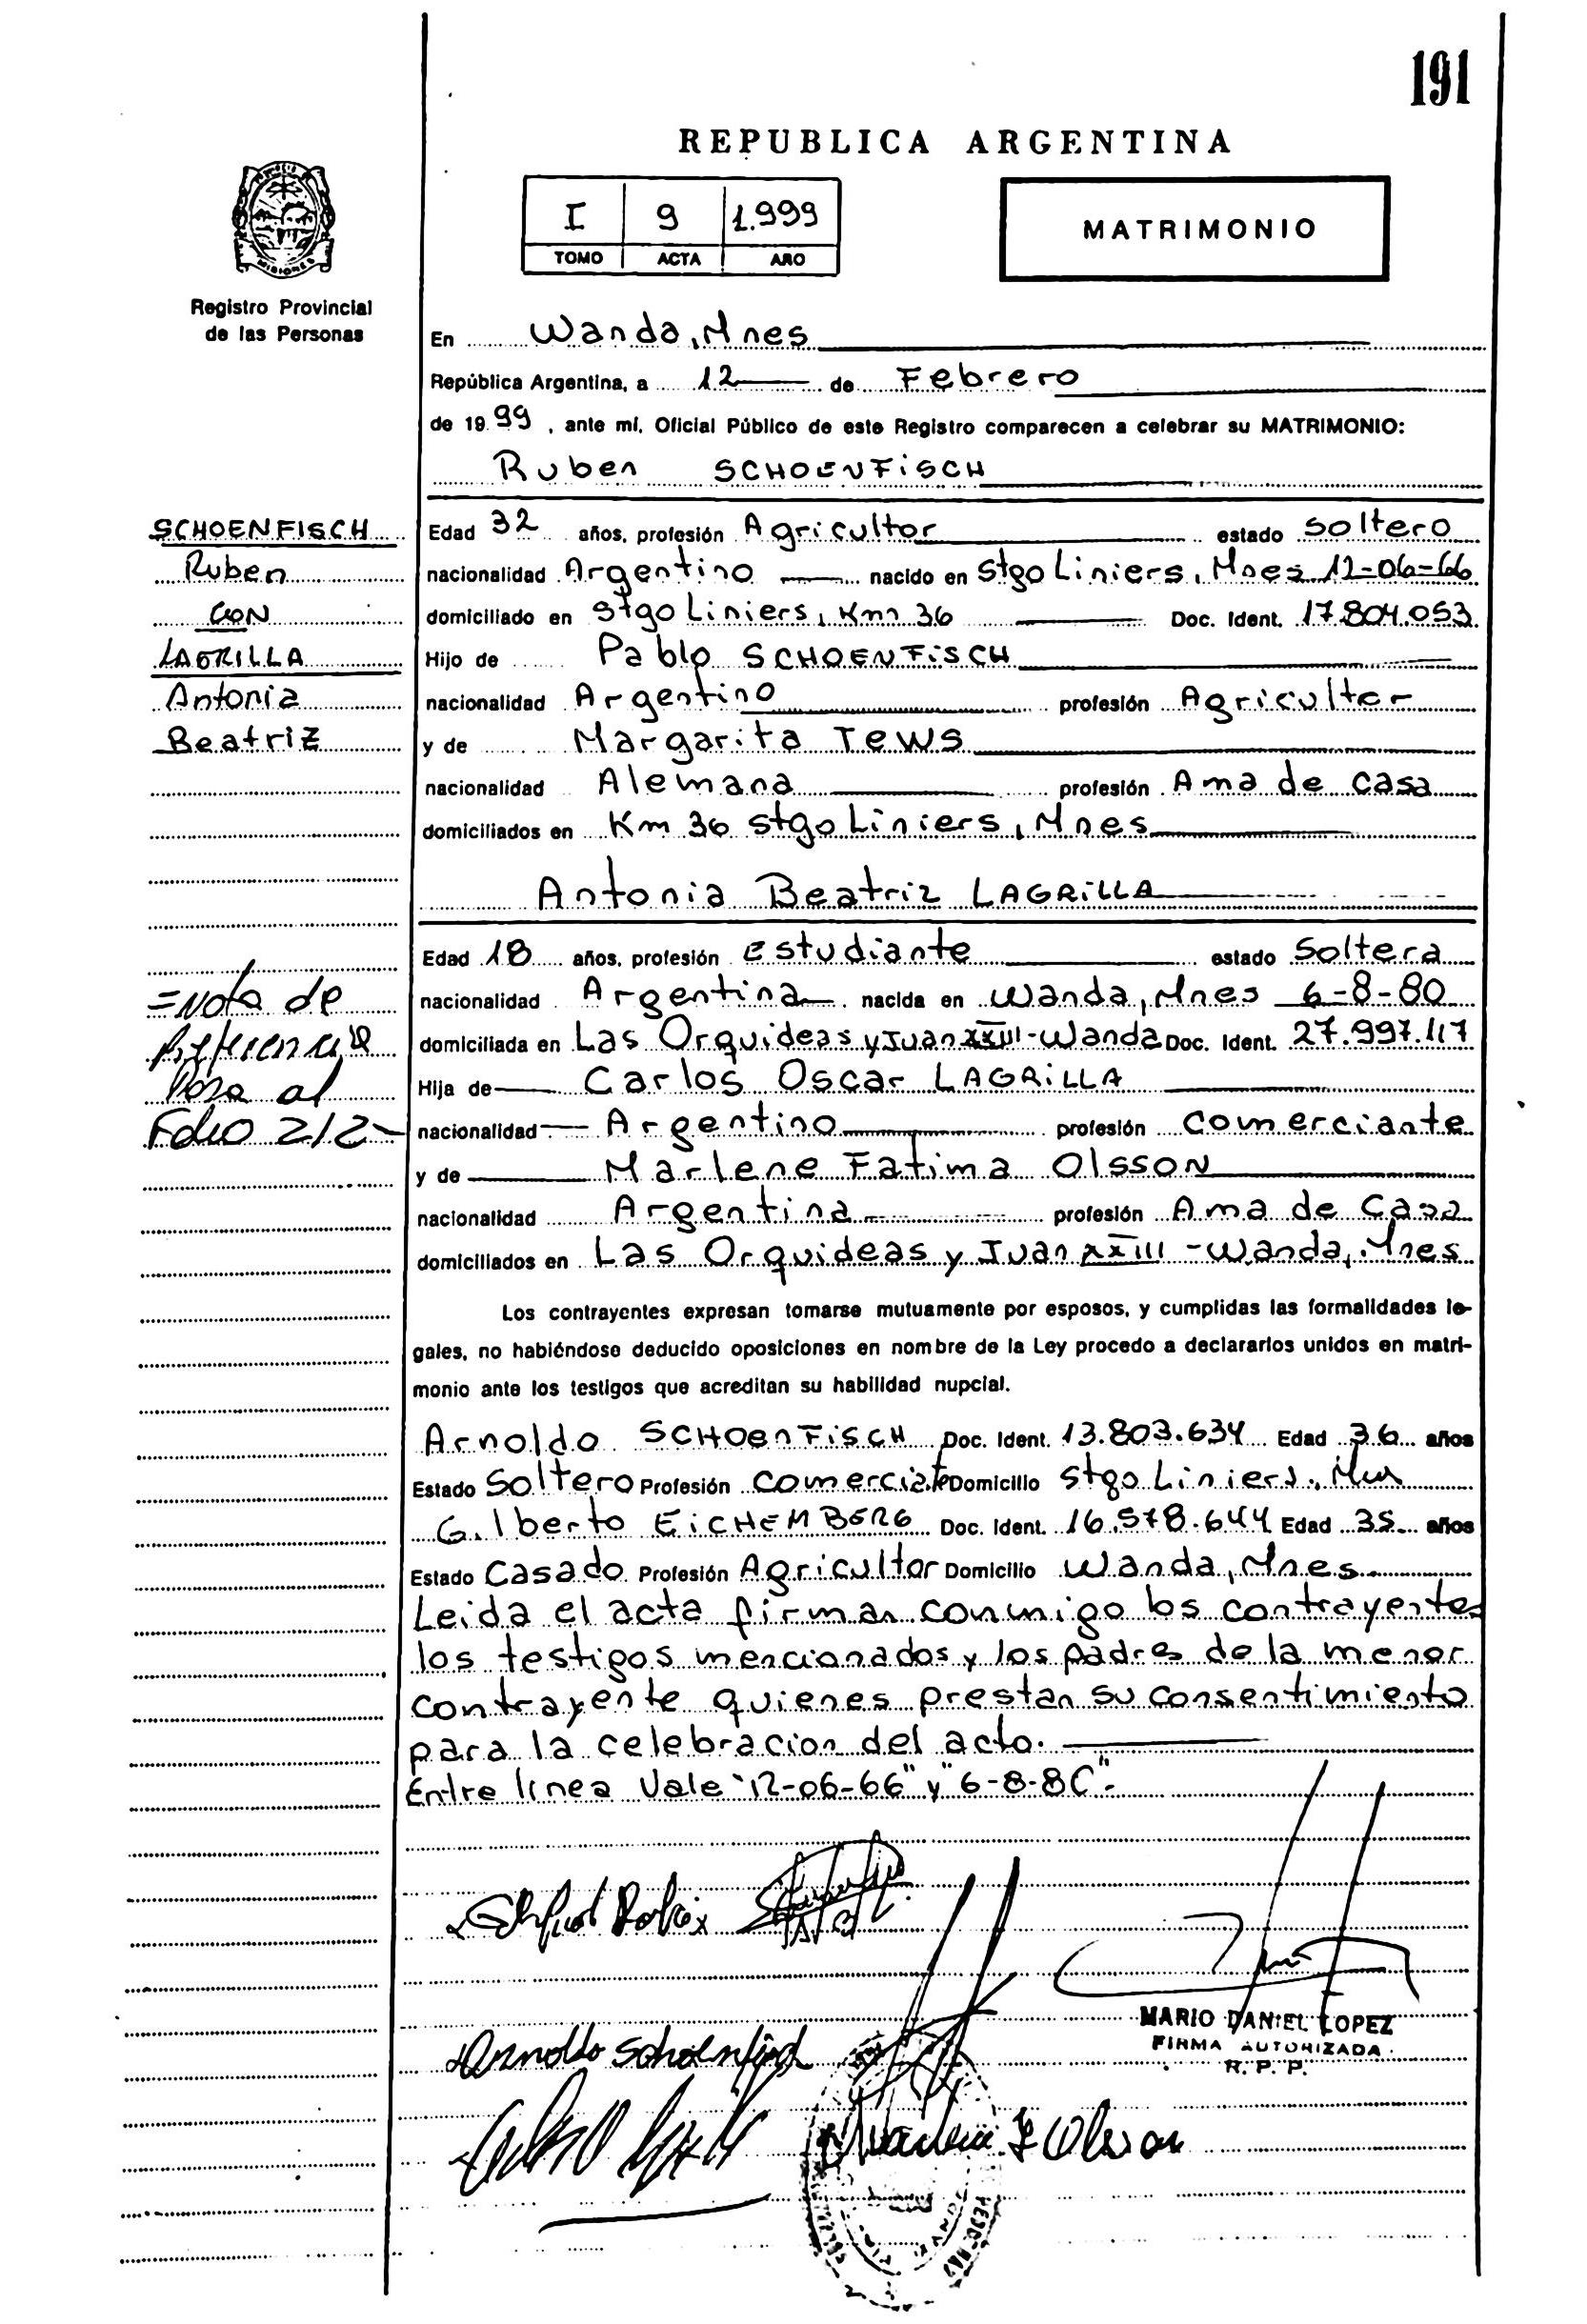 191
REPUBLICA ARGENTINA
I 9 1.999
TOMO ACTA AÑO
MATRIMONIO
MISIONES
Registro Provincial
de las Personas
En Wanda, Mnes
República Argentina, a 12 de Febrero
de 1999, ante mí, Oficial Público de este Registro comparecen a celebrar su MATRIMONIO:
Ruben SCHOENFISCH
SCHOENFISCH
Ruben
CON
LAGRILLA
Antonia
Beatriz
Edad 32 años, profesión Agricultor estado Soltero
nacionalidad Argentino nacido en Stgo Liniers, Mnes 12-06-66
domiciliado en Stgo Liniers, Km 36 Doc. Ident. 17.804.053
Hijo de Pablo SCHOENFISCH
nacionalidad Argentino profesión Agricultor
y de Margarita Tews
nacionalidad Alemana profesión Ama de casa
domiciliados en Km 36 Stgo Liniers, Mnes
Antonia Beatriz LAGRILLA
Edad 18 años, profesión Estudiante estado Soltera
nacionalidad Argentina nacida en Wanda, Mnes 6-8-80
domiciliada en Las Orquideas y Juan XXIII - Wanda Doc. Ident. 27.997.117
Hija de Carlos Oscar LAGRILLA
nacionalidad Argentino profesión Comerciante
y de Marlene Fatima Olsson
nacionalidad Argentina profesión Ama de Casa
domiciliados en Las Orquideas y Juan XXIII - Wanda, Mnes
=Nota de
Referencia
Pasa al
Folio 212-
Los contrayentes expresan tomarse mutuamente por esposos, y cumplidas las formalidades le-
gales, no habiéndose deducido oposiciones en nombre de la Ley procedo a declararlos unidos en matri-
monio ante los testigos que acreditan su habilidad nupcial.
Arnoldo SCHOENFISCH Doc. Ident. 13.803.634 Edad 36 años
Estado Soltero Profesión Comerciate Domicilio Stgo Liniers, Mnes
Gilberto EICHEMBERG Doc. Ident. 16.578.644 Edad 35 años
Estado Casado Profesión Agricultor Domicilio Wanda, Mnes
Leida el acta firman conmigo los contrayentes
los testigos mencionados y los padres de la menor
contrayente quienes prestan su consentimiento
para la celebracion del acto.
Entre linea Vale "12-06-66" y "6-8-80".-
Arnoldo Schoenfisch
MARIO DANIEL LOPEZ
FIRMA AUTORIZADA
R. P. P.
Marlene F Olsson